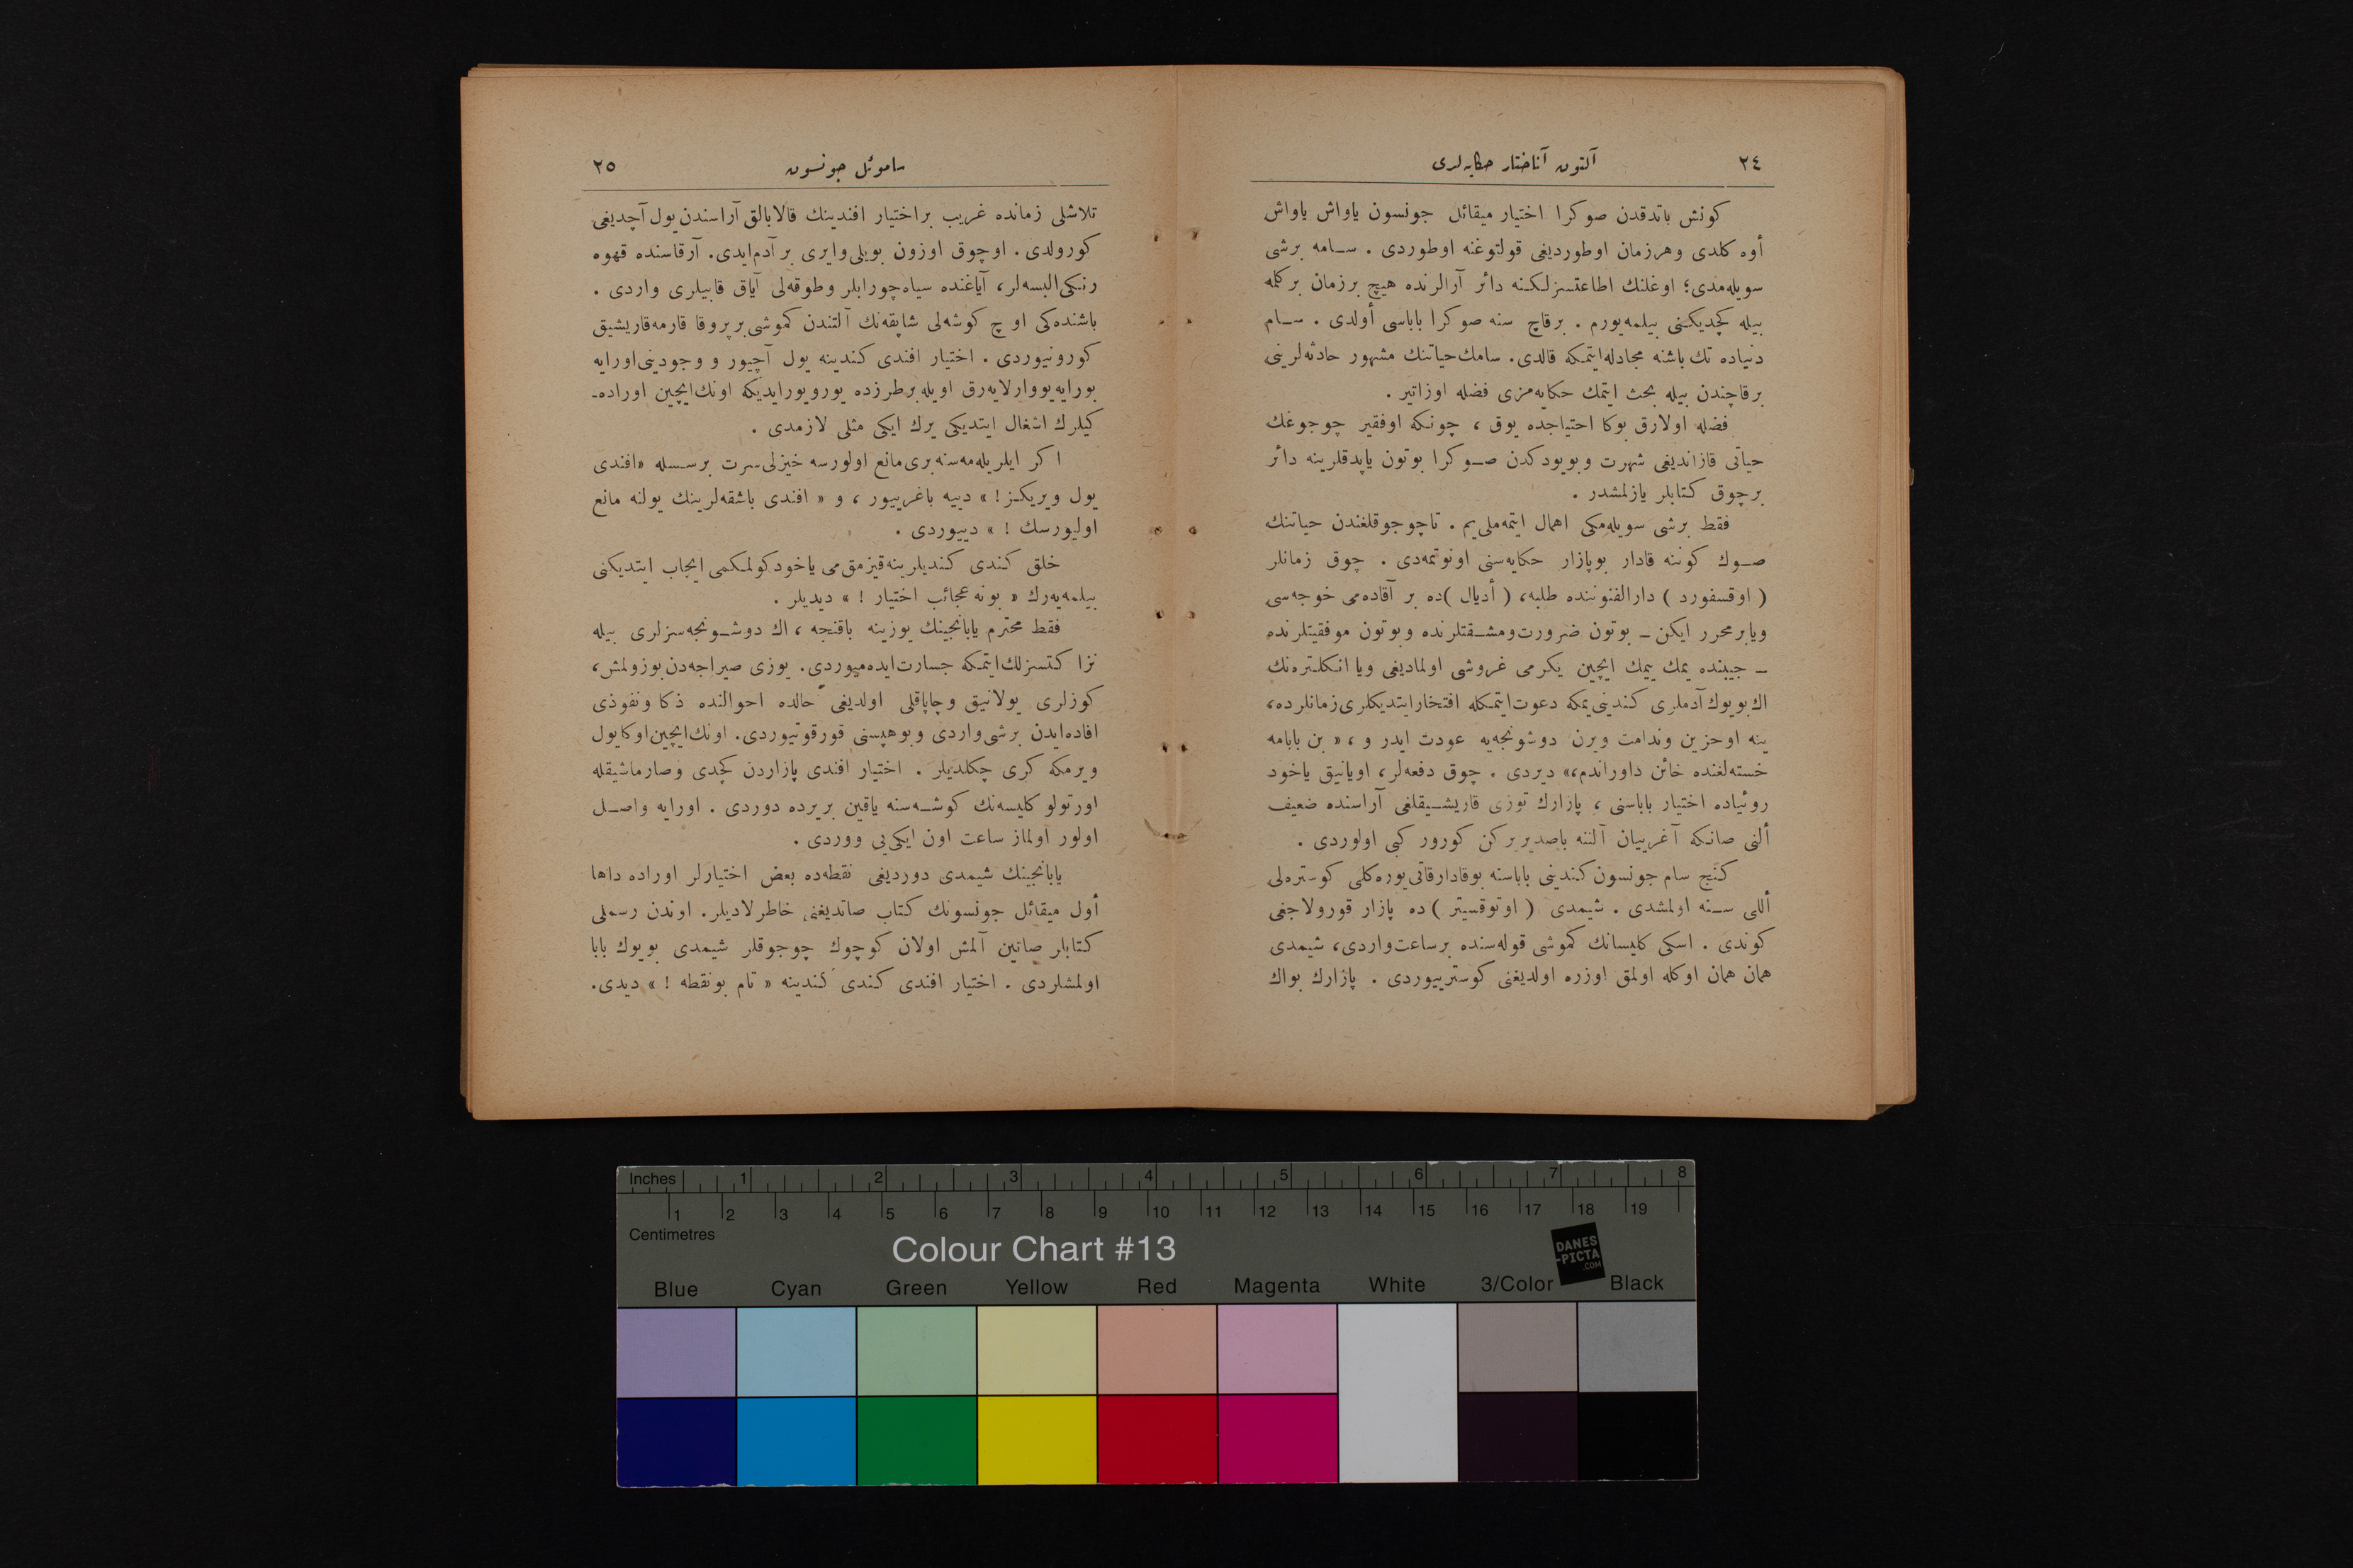 ٢٤
آلتون آناختار حكايه‌لرى
كونش باتدقدن صوكرا اختيار ميقائل جونسون ياواش ياواش
أوه كلدى وهرزمان اوطورديغى قولتوغنه اوطوردى . سـامه برشى
سويله‌مدى؛ اوغلنك اطاعتسزلكنه دائر آرالرنده هيچ برزمان بركلمه
بيله كچديكنى بيلمه‌يورم . برقاچ سنه صوكرا باباسى أولدى . سـام
دنياده تك باشنه مجادله‌ايتمكه قالدى. سامك‌حياتنك مشهور حادثه‌لرينى
برقاچندن بيله بحث ايتمك حكايه‌مزى فضله اوزاتير .
فضله اولارق بوكا احتياجده يوق ، چونكه اوفقير چوجوغك
حياتى قازانديغى شهرت وبويودكدن صـوكرا بوتون ياپدقلرينه دائر
برچوق كتابلر يازلمشدر .
فقط برشى سويله‌مكى اهمال ايتمه‌ملى‌يم . تاچوجوقلغندن حياتنك
صـوك كوننه قادار بوپازار حكايه‌سنى اونوتمه‌دى . چوق زمانلر
( اوقسفورد ) دارالفنوننده طلبه، ( أديال )ده بر آقاده‌مى خوجه‌سى
ويابرمحرر ايكن ـ بوتون ضرورت‌ومشـقتلرنده وبوتون موفقيتلرنده
ـ جيبنده يمك ييمك ايچين يكرمى غروشى اولماديغى ويا انكلتره‌نك
اك‌بويوك‌آدملرى كندينى‌يمكه دعوت‌ايتمكله افتخارايتديكلرى‌زمانلرده،
ينه اوحزين وندامت ويرن دوشونجه‌يه عودت ايدر و ، « بن بابامه
خسته‌لغنده خائن داوراندم،» ديردى . چوق دفعه‌لر، اويانيق ياخود
رؤياده اختيار باباسنى ، پازارك توزى قاريشـيقلغى آراسنده ضعيف
ألنى صانكه آغرييان آلننه باصديريركن كورور كبى اولوردى .
كنج سام جونسون كندينى باباسنه بوقادارقاتى‌يوره‌كلى كوستره‌لى
أللى سـنه اولمشدى . شيمدى ( اوتوقسيتر ) ده پازار قورولاجغى
كوندى . اسكى كليسانك كموشى قوله‌سنده برساعت‌واردى، شيمدى
همان همان اوكله اولمق اوزره اولديغنى كوسترييوردى . پازارك بواك
ساموئل جونسون
٢٥
تلاشلى زمانده غريب براختيار افندينك قالابالق آراسندن‌يول آچديغى
كورولدى . اوچوق اوزون بويلى‌وايرى بر آدم‌ايدى. آرقاسنده قهوه
رنكى‌البسه‌لر، آياغنده سياه‌چورابلر وطوقه‌لى آياق قابيلرى واردى .
باشنده‌كى اوچ كوشه‌لى شاپقه‌نك آلتندن كموشى‌برپروقا قارمه‌قاريشيق
كورونيوردى . اختيار افندى كندينه يول آچيور و وجودينى‌اورايه
بورايه‌يووارلايه‌رق اويله‌برطرزده يورويورايديكه اونك‌ايچين اوراده‌ـ
كيلرك اشغال ايتديكى يرك ايكى مثلى لازمدى .
اكر ايلريله‌مه‌سنه‌برى‌مانع اولورسه خيزلى‌سرت برسسله «افندى
يول ويريكز! » دييه باغرييور ، و « افندى باشقه‌لرينك يولنه مانع
اوليورسك ! » دييوردى .
خلق كندى كنديلرينه‌قيزمق‌مى ياخودكولمكمى ايجاب ايتديكنى
بيلمه‌يه‌رك « بونه عجائب اختيار ! » ديديلر .
فقط محترم يابانجينك يوزينه باقنجه ، اك دوشـونجه‌سزلرى بيله
نزاكتسزلك‌ايتمكه جسارت‌ايده‌ميوردى. يوزى صيراجه‌دن‌بوزولمش،
كوزلرى يولانيق وچاپاقلى اولديغى حالده احوالنده ذكا ونفوذى
افاده‌ايدن برشى‌واردى وبوهپسنى قورقوتيوردى. اونك‌ايچين‌اوكايول
ويرمكه كرى چكلديلر . اختيار افندى پازاردن كچدى وصارماشيقله
اورتولو كليسه‌نك كوشـه‌سنه ياقين بريرده دوردى . اورايه واصـل
اولور اولماز ساعت اون ايكى‌يى ووردى .
يابانجينك شيمدى دورديغى نقطه‌ده بعض اختيارلر اوراده داها
أول ميقائل جونسونك كتاب صاتديغنى خاطرلاديلر. اوندن رسملى
كتابلر صاتين آلمش اولان كوچوك چوجوقلر شيمدى بويوك بابا
اولمشلردى . اختيار افندى كندى كندينه « تام بونقطه ! » ديدى.
Inches 1 2 3 4 5 6 7 8
1 2 3 4 5 6 7 8 9 10 11 12 13 14 15 16 17 18 19
Centimetres
Colour Chart #13
DANES
-PICTA
.COM
Blue Cyan Green Yellow Red Magenta White 3/Color Black